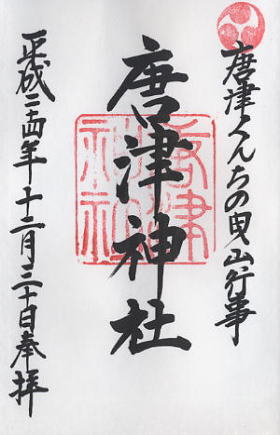 唐津くんちの曳山行事
唐津神社
唐津神社
平成二十四年十二月三十日奉拝